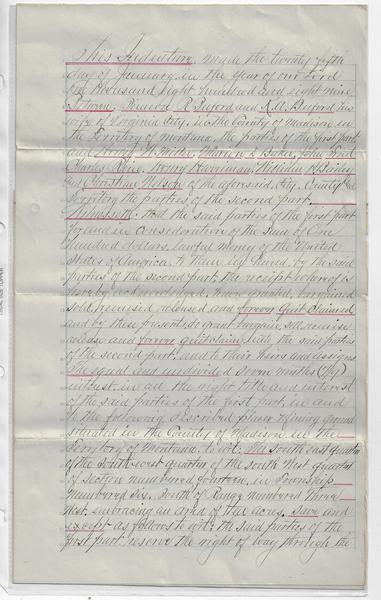 This Indenture, made the twenty fifth
day of January, in the year of our Lord
one thousand eight hundred and eight nine
Between, Simeon R Buford and K.A. Buford his
wife of Virginia City, in the County of Madison in
the Territory of Montana, the parties of the first part
and W. Baker, John
Charles Henry Harriman, William H
and Christian Nelson of the aforesaid, City, County and
Territory the parties of the second part.
Witnesseth: That the said parties of the first part
for and in consideration of the sum of One
hundred dollars, lawful money of the United
States of America, to them in hand, by the said
parties of the second part, the receipt whereof is
hereby acknowledged, have granted, bargained
sold, remised, released and forever Quit Claimed
and by these presents, do grant bargain, sell, remise
release and forever quit claim, unto the said parties
of the second part, and to their heirs and assigns
The equal and undivided seven ninths (7/9)
interest, in all the right title and interest
of the said parties of the first part, in and
to the following described placer mining ground
situated in the County of Madison in the
Territory of Montana, to wit: The South east quarter
of the South west quarter of the South West quarter
of Section numbered fourteen, in Township
numbered Six, South of Range numbered Three
West, embracing an area of ten acres, save and
except as follows to wit: the said parties of the
first part, reserve the right of way through the